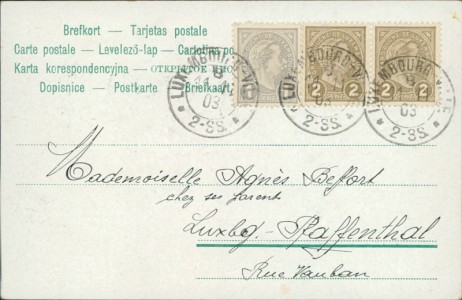 Brefkort — Tarjetas postale
Carte postale — Levelező-lap — Cartolina po
Karta korespondencyjna — ОТКРЫТОЕ
Dopisnice — Postkarte — Briefkaart
LUXEMBOURG
03
2-3S.
LUXEMBOURG
03
2-3S.
LUXEMBOURG
03
2-3S.
2 2
2 2
Mademoiselle Agnès Belfort
chez ses parents
Luxbg.-Pfaffenthal
Rue Vauban